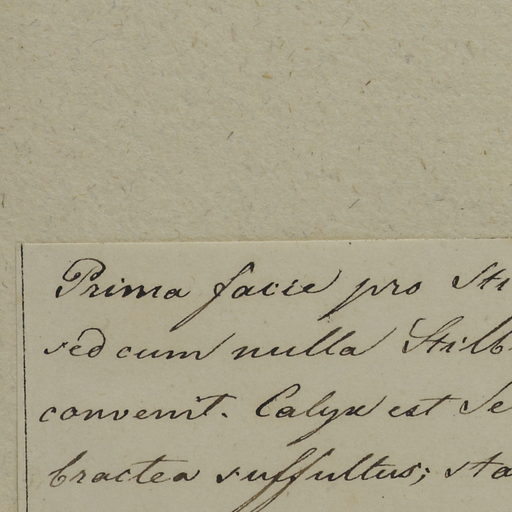 Prima facie pro Sti
sed cum nulla Stilb
convenit. Calyx est Se
bractea suffultus; sta